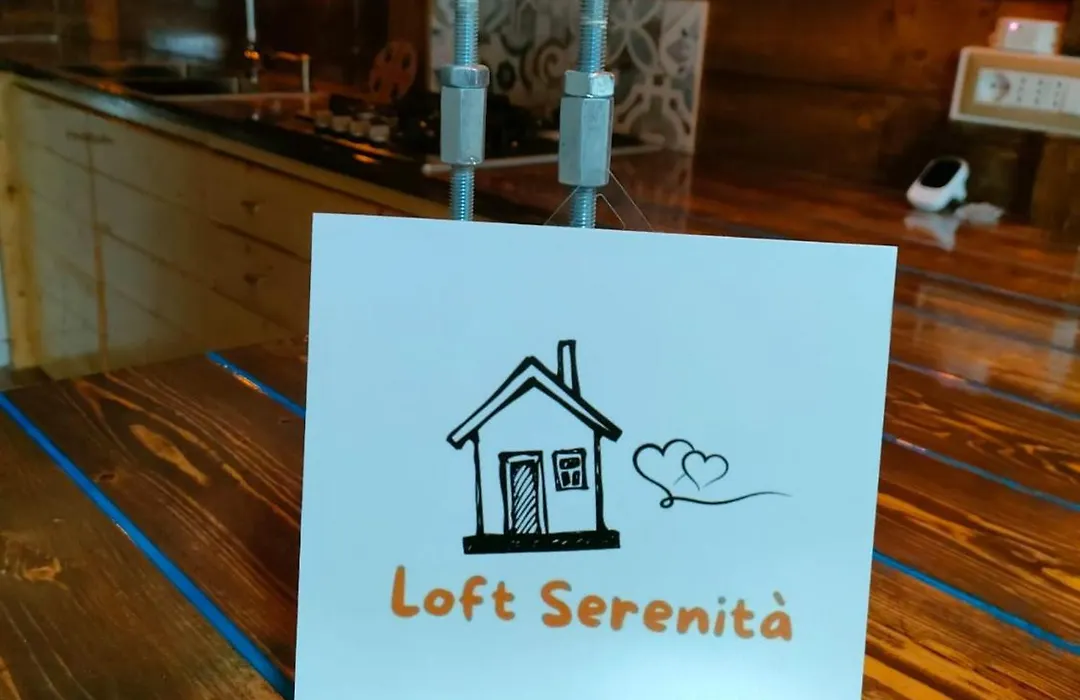 Loft Serenità